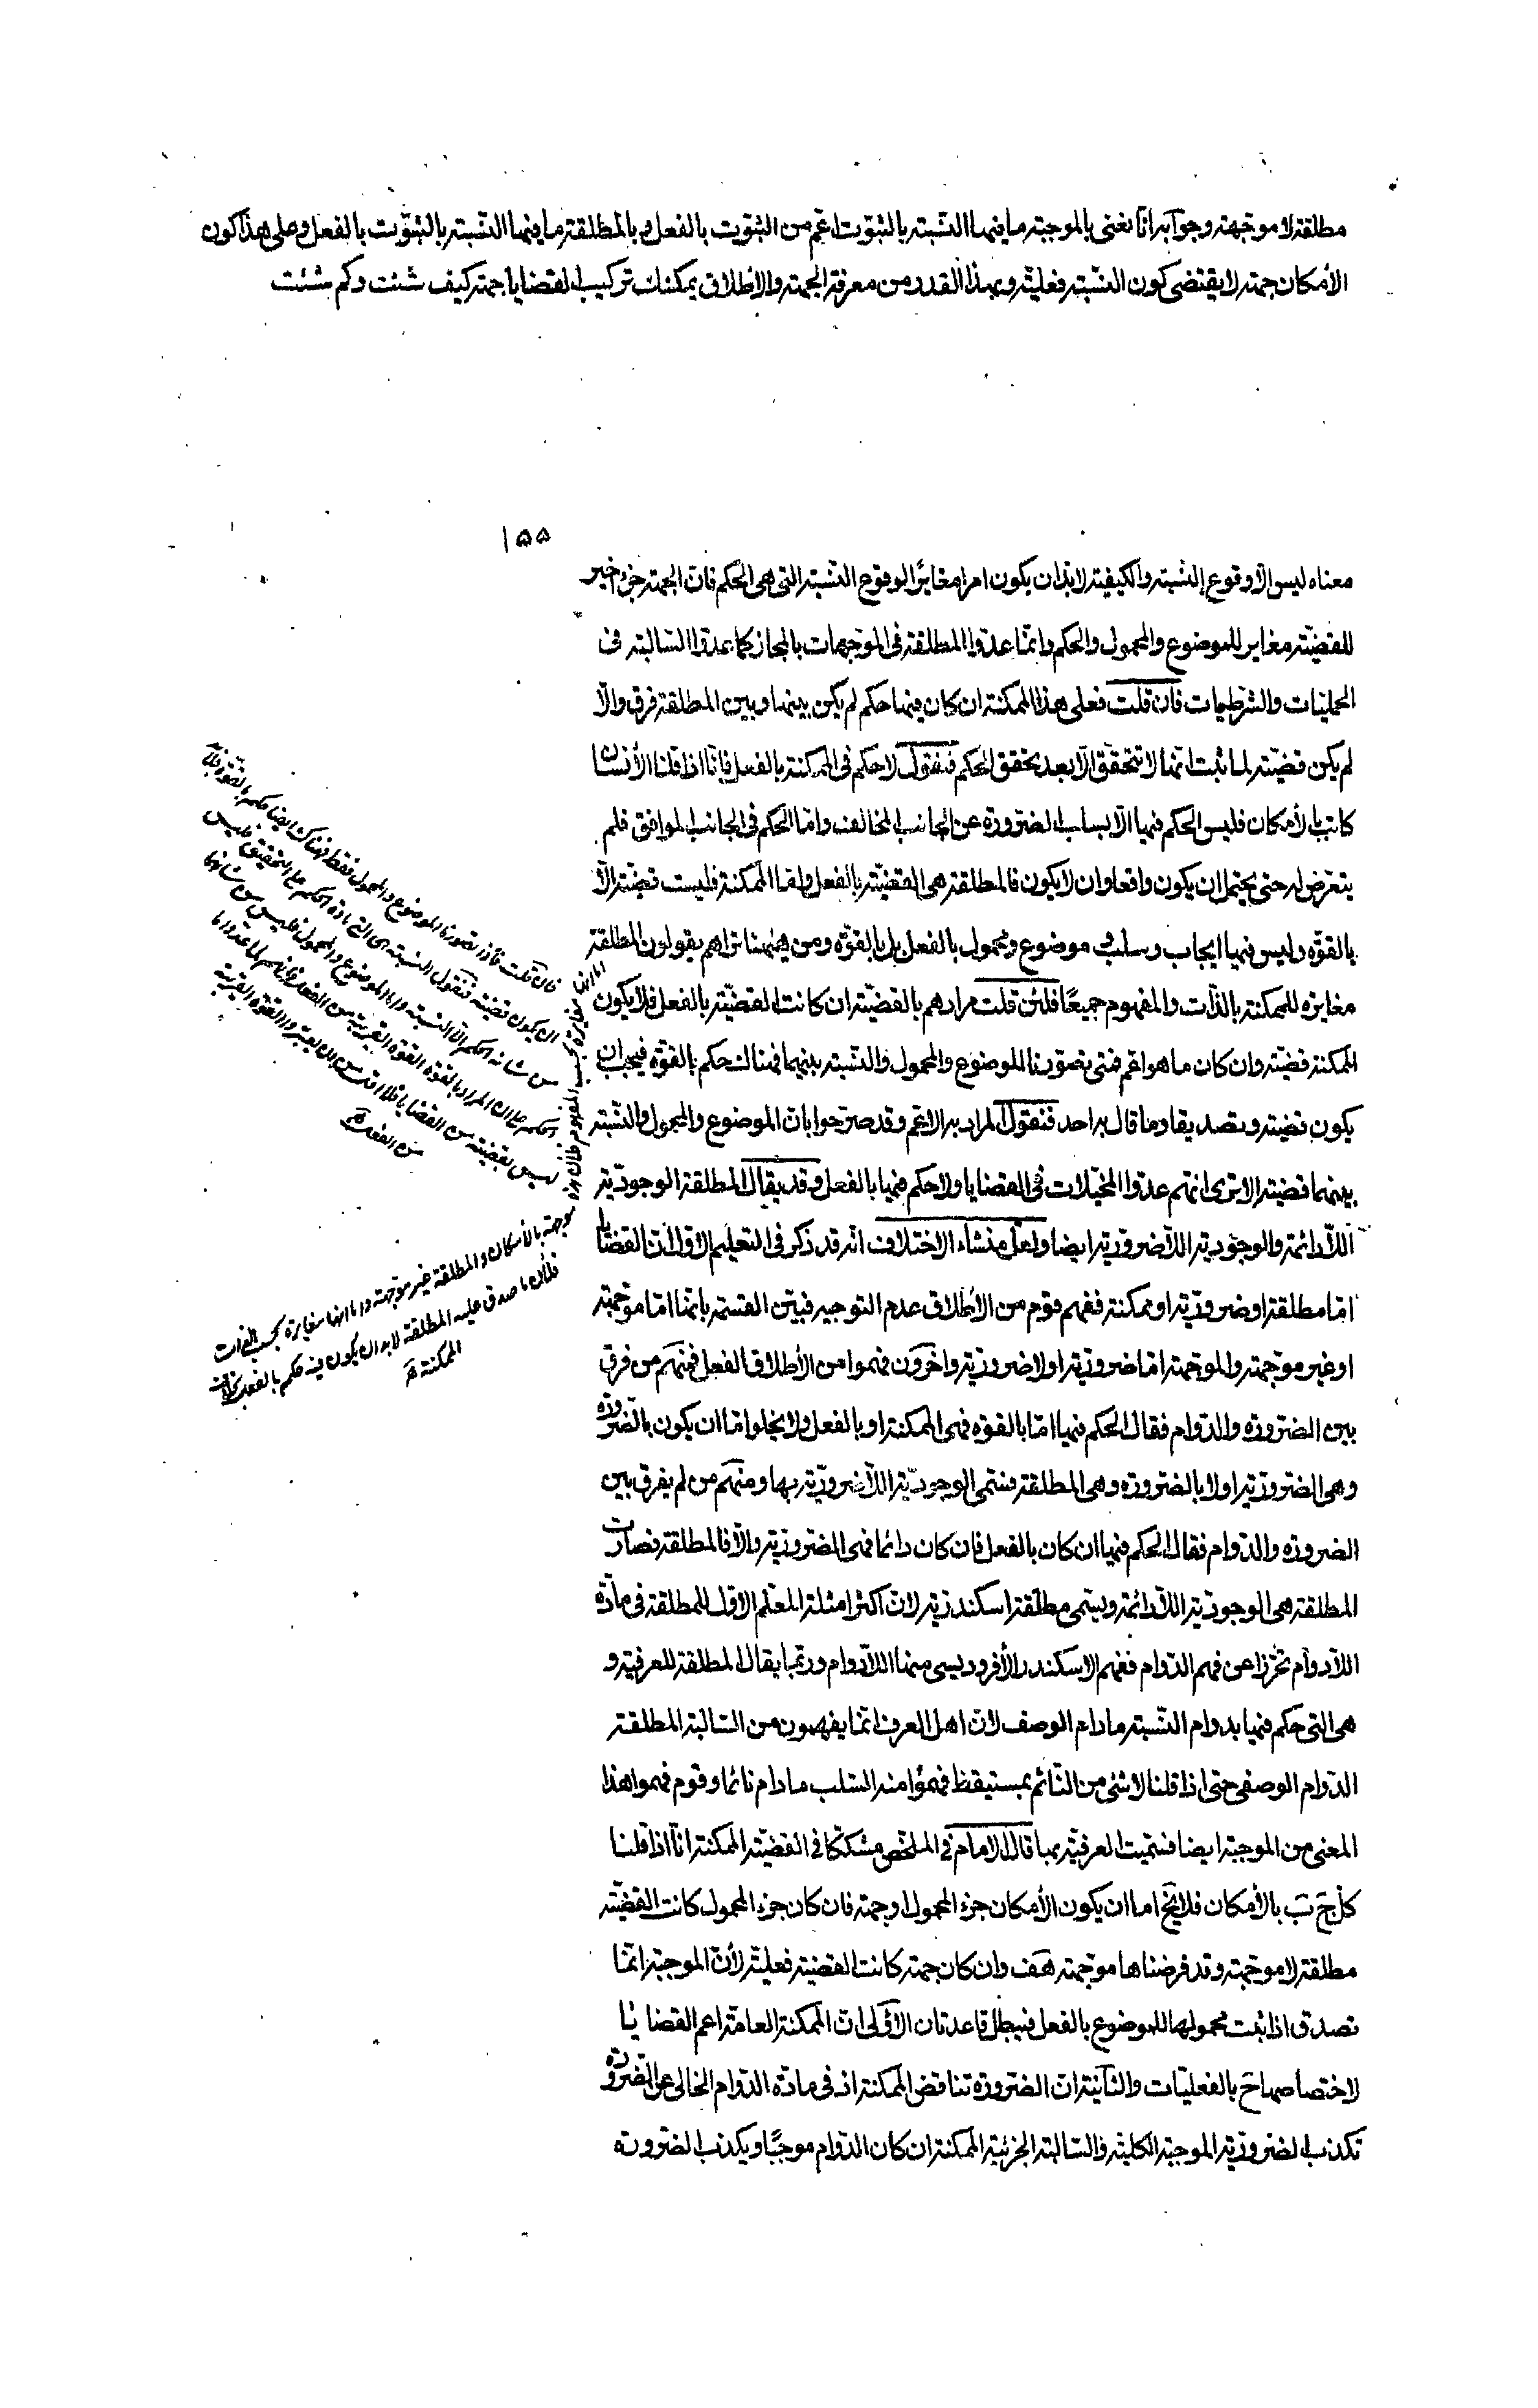 مطلقة لا موجهة وجوابه انا نعنى بالموجبة ما فيها النسبة بالثبوت اعم من الثبوت بالفعل و بالمطلقة ما فيها النسبة بالثبوت بالفعل و على هذا كون
الأمكان جهة لا يقتضى كون النسبة فعلية و بهذا القدر من معرفة الجهة والأطلاق يمكنك تركيب القضايا جهة كيف شئت و كم شئت
١٥٥
معناه ليس الا وقوع النسبة والكيفية لا بد ان يكون امرا مغايرا لوقوع النسبة التى هى الحكم فان الجهة جزء اخير
للقضية مغاير للموضوع والمحمول والحكم وانما عدوا المطلقة فى الموجهات بالمجاز كما عدوا السالبة فى
الحمليات والشرطيات فان قلت فعلى هذا الممكنة ان كان فيها حكم لم يكن بينها وبين المطلقة فرق والا
لم يكن قضية لما ثبت انها لا تتحقق الا بعد تحقق الحكم فنقول لا حكم فى الممكنة بالفعل فانا اذا قلنا الأنسان
كاتب بالأمكان فليس الحكم فيها الا بسلب الضرورة عن الجانب المخالف واما الحكم فى الجانب الموافق فلم
يتعرض له حتى يحتمل ان يكون واقعا وان لا يكون فالمطلقة هى القضية بالفعل واما الممكنة فليست قضية الا
بالقوة وليس فيها ايجاب وسلب و موضوع ومحمول بالفعل بل بالقوة ومن هيهنا تراهم يقولون المطلقة
مغايرة للممكنة بالذات والمفهوم جميعا فلئن قلت مرادهم بالقضية ان كانت القضية بالفعل فلا يكون
الممكنة قضية وان كان ما هو اعم فمتى تصورنا الموضوع والمحمول والنسبة بينهما فهناك حكم بالقوة فيجب ان
يكون قضية وتصديقا وما قال به احد فنقول المراد به الاعم وقد صرحوا بان الموضوع والمحمول والنسبة
بينهما قضية الا ترى انهم عدوا المخيلات فى القضايا ولا حكم فيها بالفعل وقد يقال المطلقة الوجودية
اللادائمة والوجودية اللاضرورية ايضا ولعل منشاء الاختلاف انه قد ذكر فى التعليم الاول ان القضايا
اما مطلقة او ضرورية او ممكنة ففهم قوم من الأطلاق عدم التوجيه فبين القسمة بانها اما موجهة
او غير موجهة والموجهة اما ضرورية او لا ضرورية واخرون فهموا من الأطلاق الفعل فمنهم من فرق
بين الضرورة والدوام فقال الحكم فيها اما بالقوة فهى الممكنة او بالفعل ولا يخلو اما ان يكون بالضرورة
وهى الضرورية او لا بالضرورة وهى المطلقة فسمى الوجودية اللاضرورية بها ومنهم من لم يفرق بين
الضرورة والدوام فقال الحكم فيها ان كان بالفعل فان كان دائما فهى الضرورية والا فالمطلقة فصارت
المطلقة هى الوجودية اللادائمة ويسمى مطلقة اسكندرية لان اكثر امثلة المعلم الاول للمطلقة فى مادة
اللادوام تحرزا عن فهم الدوام ففهم الاسكندر الأفروديسى منها اللادوام وربما يقال المطلقة للعرفية و
هى التى حكم فيها بدوام النسبة ما دام الوصف لان اهل العرف انما يفهمون من السالبة المطلقة
الدوام الوصفى حتى اذا قلنا لا شئ من النائم بمستيقظ فهموا منه السلب ما دام نائما وقوم فهموا هذا
المعنى من الموجبة ايضا فسميت العرفية بها قال الامام فى الملخص مشككا فى القضية الممكنة انا اذا قلنا
كل ج ب بالأمكان فلا يخ اما ان يكون الأمكان جزء المحمول او جهة فان كان جزء المحمول كانت القضية
مطلقة لا موجهة وقد فرضناها موجهة هف وان كان جهة كانت القضية فعلية لأن الموجبة انما
تصدق اذا ثبت محمولها للموضوع بالفعل فيبطل قاعدتان الاولى ان الممكنة العامة اعم القضايا
لاختصاصها ح بالفعليات والثانية ان الضرورة تناقض الممكنة اذ فى مادة الدوام الخالى عن الضرورة
تكذب الضرورية الموجبة الكلية والسالبة الجزئية الممكنة ان كان الدوام موجبا ويكذب الضرورة
فان قلت فاذا تصورنا الموضوع والمحمول فقط فهناك ايضا حكم بالقوة فلا بد
ان يكون قضية فنقول النسبة هى التى مادة الحكم على التحقيق فليس
من شانه الحكم الا النسبة واما الموضوع والمحمول فليس من شانهما
الحكم على ان المراد بالقوة القوة القريبة من الفعل فانهم لما عدوا ما
ليس بقضية من القضايا فلا اقل من ان يعتبروا القوة القريبة
من الفعل
اما انها مغايرة بحسب المفهوم فلان هذه
موجهة بالأمكان والمطلقة غير موجهة واما انها مغايرة بحسب الذات
فلان ما صدق عليه المطلقة لا بد ان يكون فيه حكم بالفعل بخلاف
الممكنة